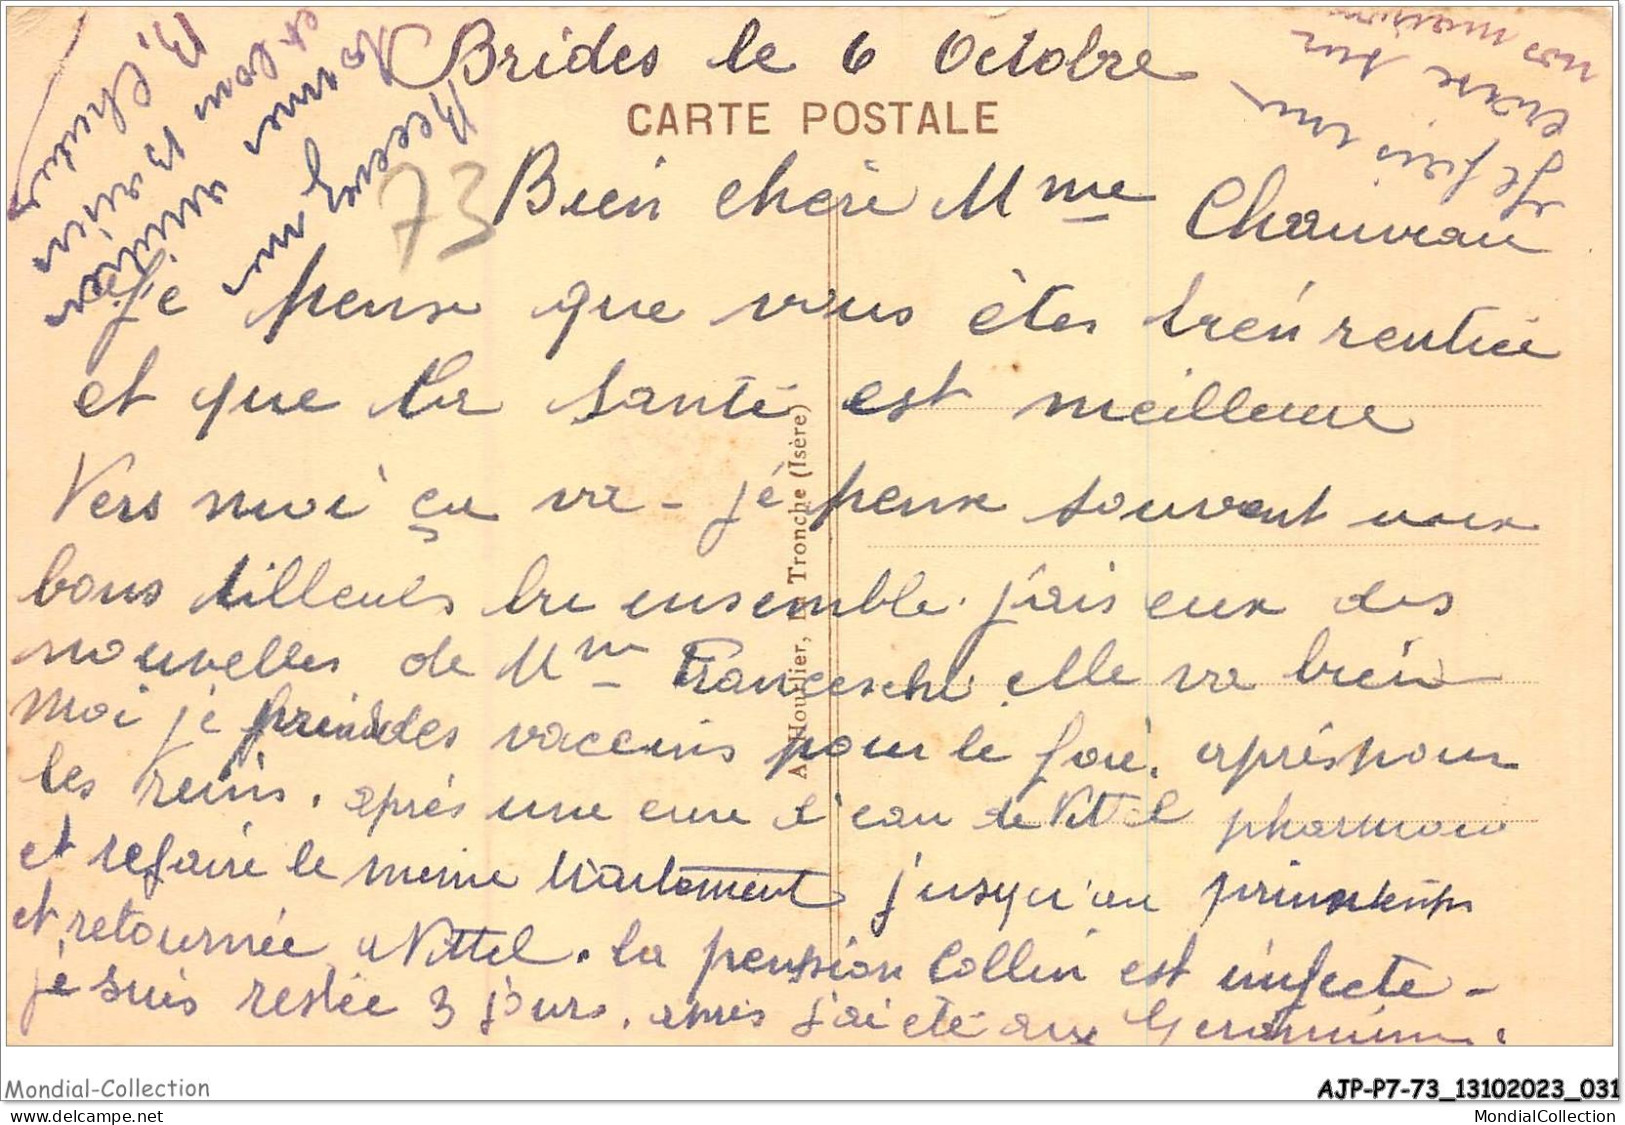 Brides le 6 Octobre
CARTE POSTALE
73
Bien chère Mme Chauveau
Je pense que vous êtes bien rentrée
et que la santé est meilleure
Vers moi ça va - je pense souvent
bons tilleuls bu ensemble. j'ais eux des
nouvelles de Mme Franceschi elle va bien
Moi je prends des vaccins pour le foie. après pour
les reins. après une cure d'eau de Vittel
et refaire le meme traitement jusqu'au printemps
et retournée a Vittel. la pension Collin est infecte -
je suis restée 3 jours. après j'ai été aux Geraniums.
Recevez
amitiés
et bons Baisers
Je fais
encore sur
A. Hourlier, La Tronche (Isère)
Mondial-Collection
delcampe.net
AJP-P7-73_13102023_031
MondialCollection